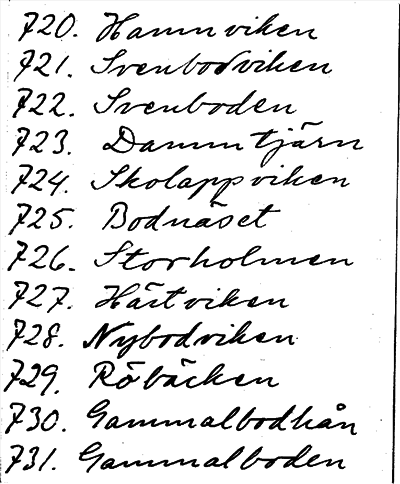 720. Hamnviken
721. Svenbodviken
722. Svenboden
723. Dammtjärn
724. Skolappviken
725. Bodnäset
726. Storholmen
727. Hästviken
728. Nybodviken
729. Röbäcken
730. Gammalbodhån
731. Gammalboden